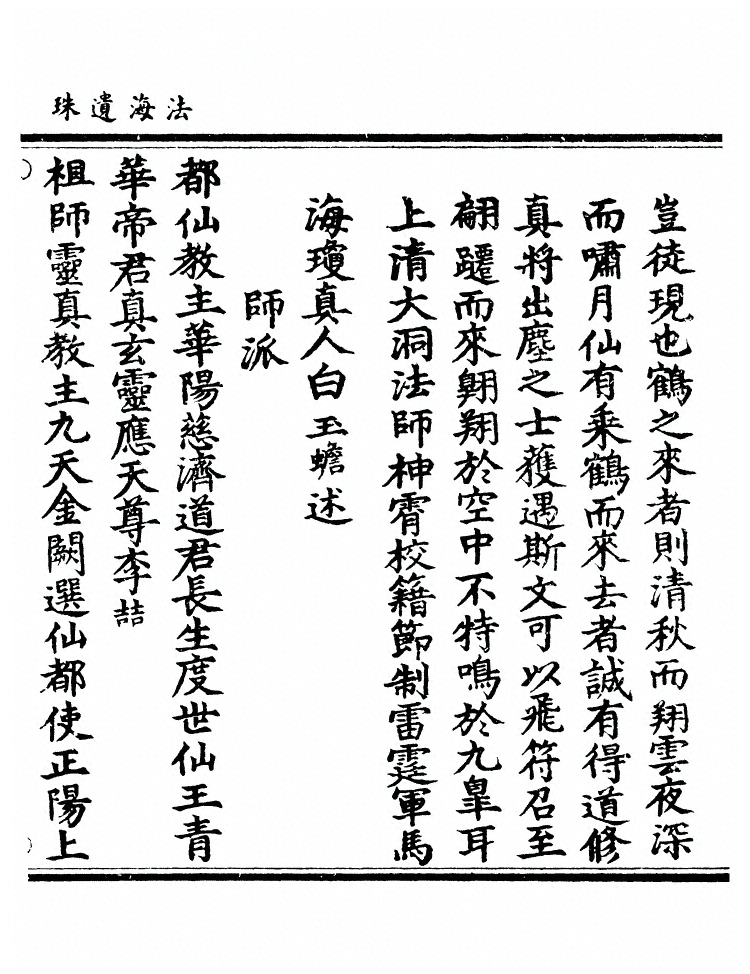 法海遺珠
豈徒現也鶴之來者則清秋而翔雲夜深
而嘯月仙有乘鶴而來去者誠有得道修
真將出塵之士獲遇斯文可以飛符召至
翩躚而來翺翔於空中不特鳴於九皐耳
上清大洞法師神霄校籍節制雷霆軍馬
海瓊真人白玉蟾述
師派
都仙教主華陽慈濟道君長生度世仙王青
華帝君真玄靈應天尊李喆
祖師靈真教主九天金闕選仙都使正陽上